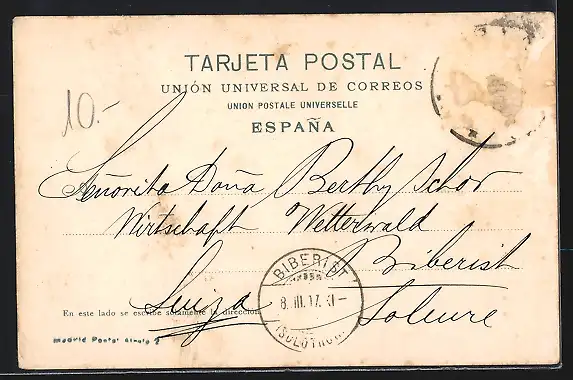 TARJETA POSTAL
UNIÓN UNIVERSAL DE CORREOS
UNION POSTALE UNIVERSELLE
ESPAÑA
10.-
Señorita Doña Berthy Schor
Wirtschaft Wetterwald
Biberist
Suiza Soleure
BIBERIST
8. III. 17. XI-
(SOLOTHURN)
En este lado se escribe solamente la dirección
Madrid Postal